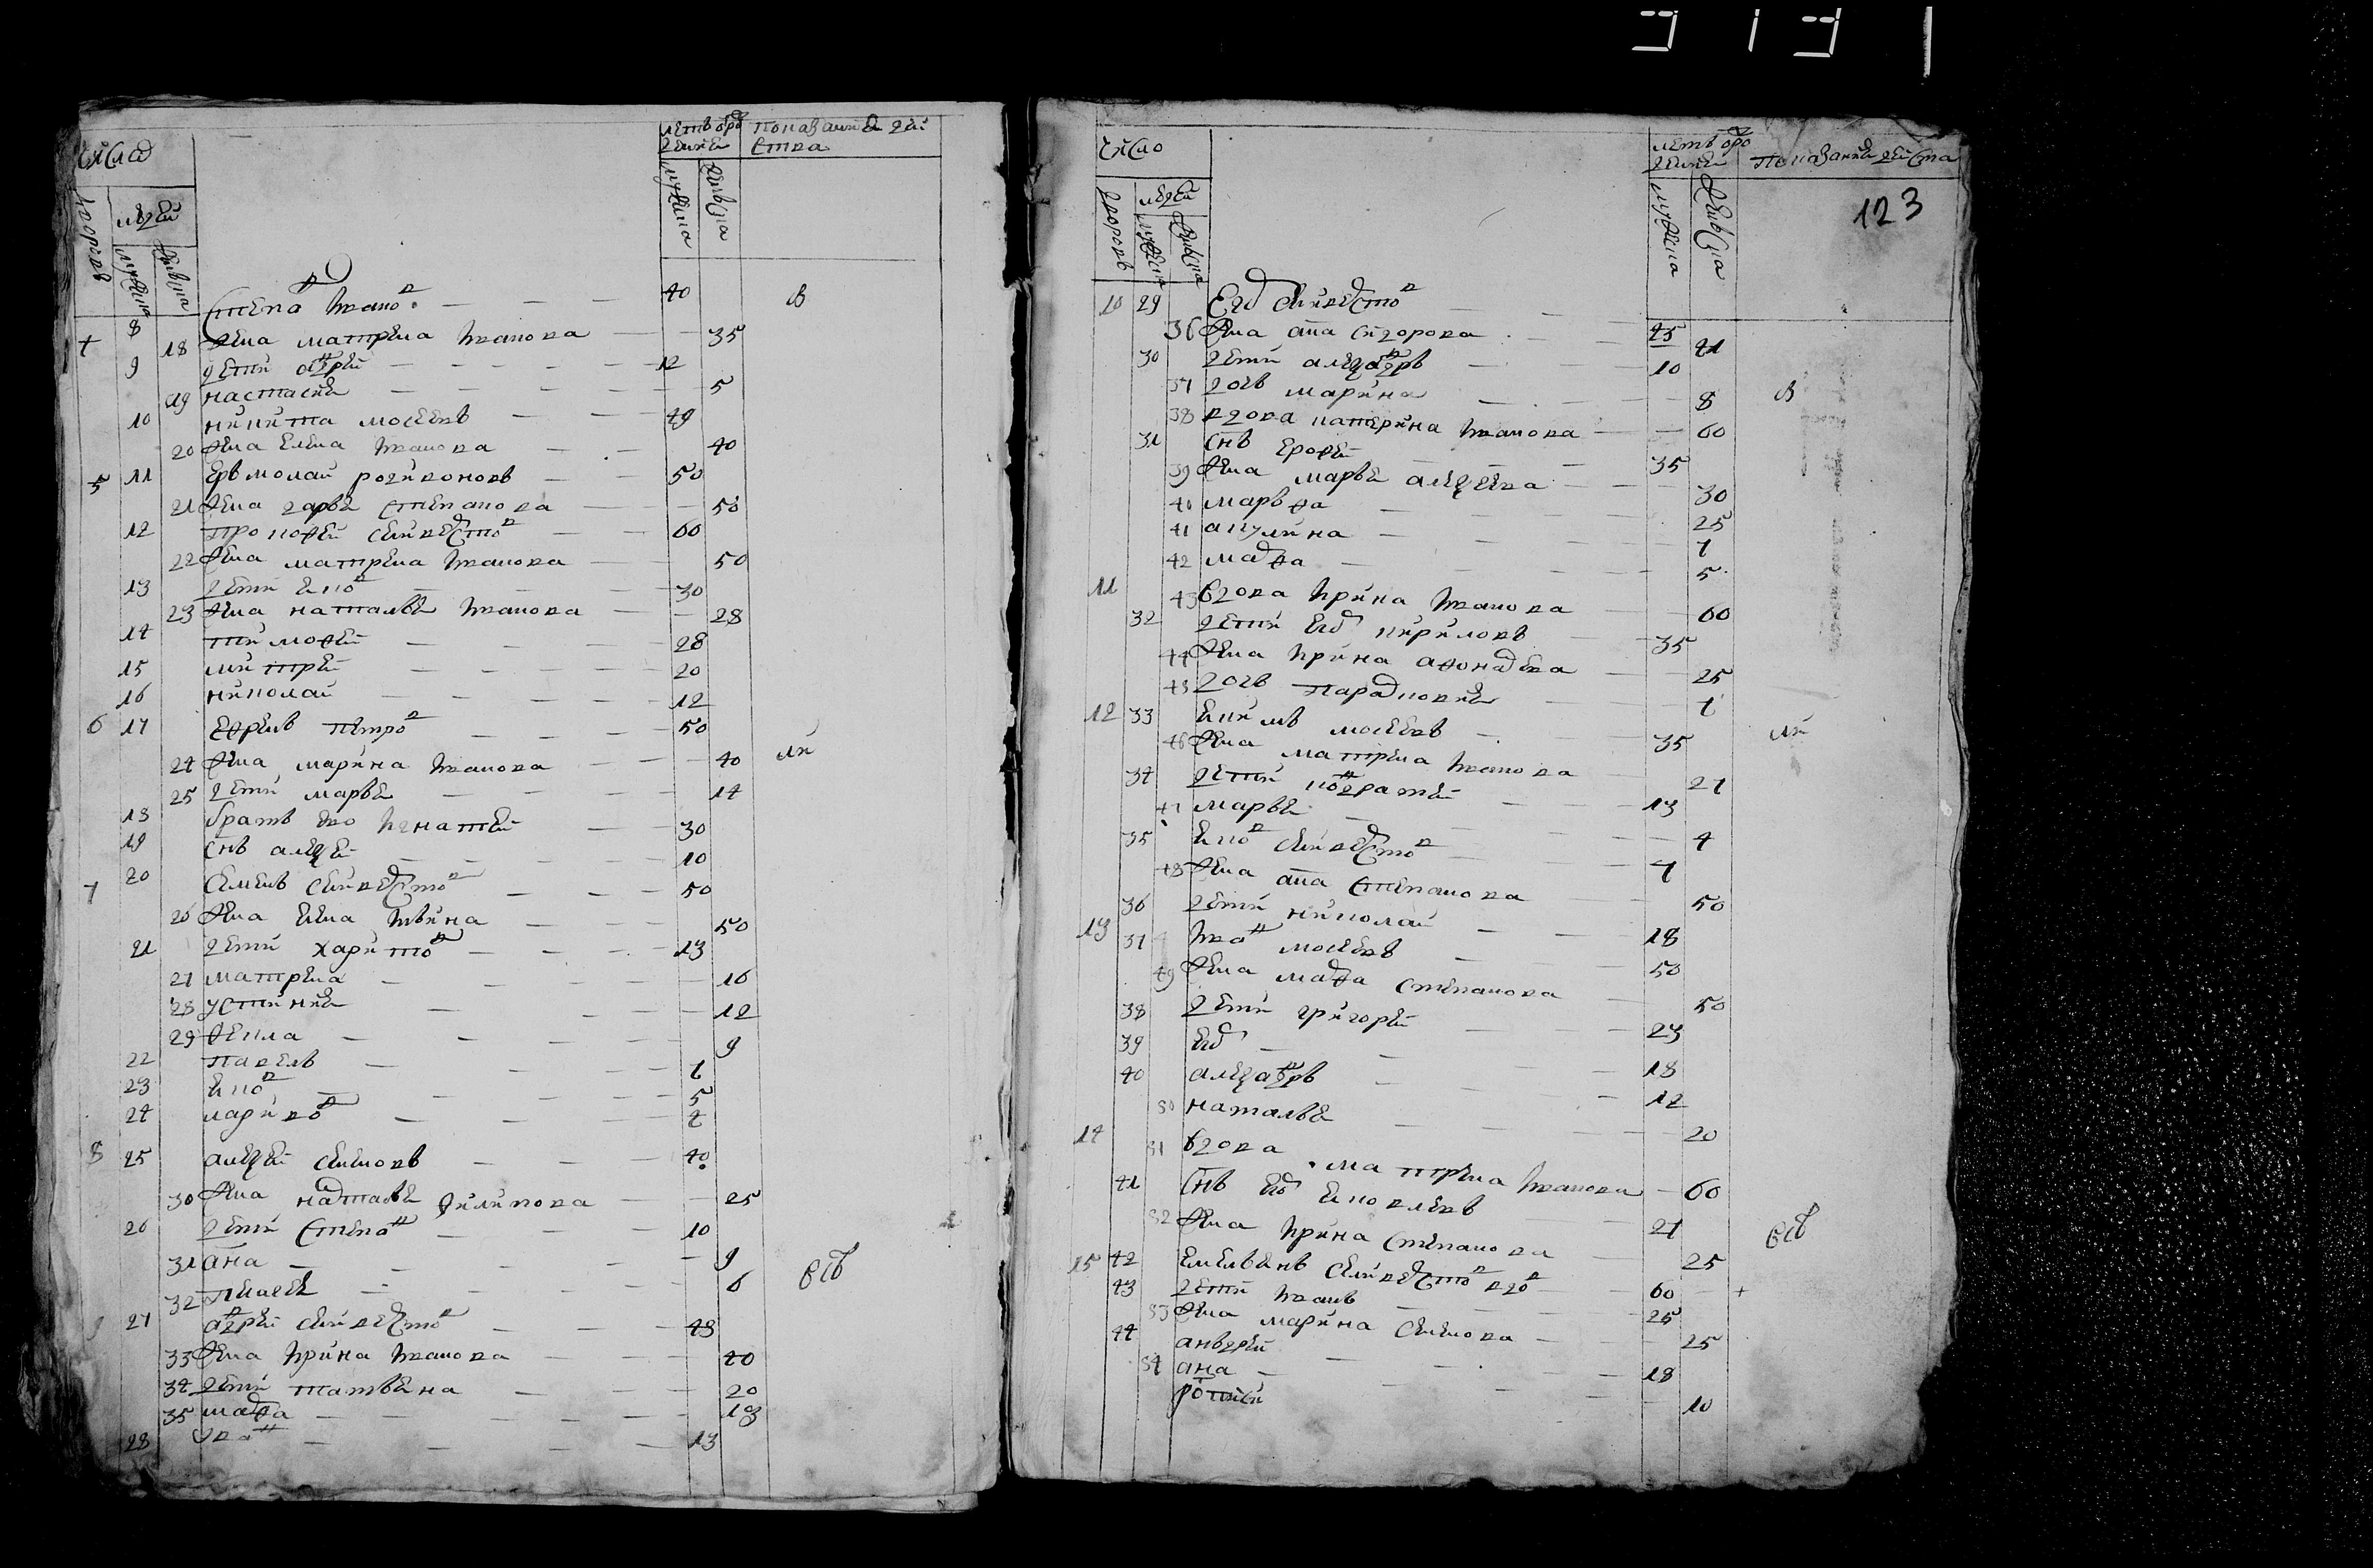 число
дворовъ
людей
мужеска
женска
летъ от рождения
мужеска
женска
показание действа
4 8 Степан Иванов 40
18 жена матрена Иванова 35
9 дети андрей 12
19 настасия 5
10 никита мосеевъ 49
20 жена елена Иванова 40
5 11 ерьмолай родивоновъ 50
21 жена дарья степанова 50
12 прокофей селиверстов 60
22 жена матрена Иванова 50
13 дети яков 30
23 жена наталья Иванова 28
14 тимофей 28
15 митрей 20
16 николай 12
6 17 ефремъ петров 50
24 жена марина Иванова 40
25 дети марья 14
18 братъ ево Игнатей 30
19 снъ алексей 10
7 20 семенъ селиверстов 50
26 жена елена 50
21 дети харитон 13
27 матрена 16
28 устиния 12
29 фекла 9
22 павелъ
23 яков 5
24 ларивон 2
8 25 алексей семеновъ 40
30 жена наталья филипова 25
26 дети степан 10
31 ана 9
32 пелагея 6
9 27 андрей селиверстов 48
33 жена Ирина Иванова 40
34 дети татьяна 20
35 марфа 18
28 Иван 13
123
число
дворовъ
людей
мужеска
женска
летъ от рождения
мужеска
женска
показание действа
10 29 Егор селиверстов 45
36 жена анна сидорова 41
30 дети александръ 10
37 дочь марина 8
38 вдова катерина Иванова 60
31 снъ ерофей 35
39 жена марья алексеева 30
40 марьфа 25
41 акулина 7
42 марфа 5
11 43 вдова Ирина Иванова 60
32 дети егор кириловъ 35
44 жена Ирина афонасева 25
45 дочь парасковия
12 33 екимъ мосеевъ 35
46 жена матрена Иванова 27
34 дети кондратей 13
47 марья 4
35 яков селиверстов
48 жена анна степанова 50
36 дети николай 18
13 37 Иван мосеевъ 50
49 жена марфа степанова 50
38 дети григорей 23
39 егор 18
40 александръ 12
50 наталья 20
14 51 вдова матрена Иванова 60
41 снъ егор яковлевъ 27
52 жена Ирина степанова 25
15 42 емельянъ селиверстов вдов 60
43 дети Иванъ 25
53 жена марина семенова 25
44 аньдрей 18
54 ана 10